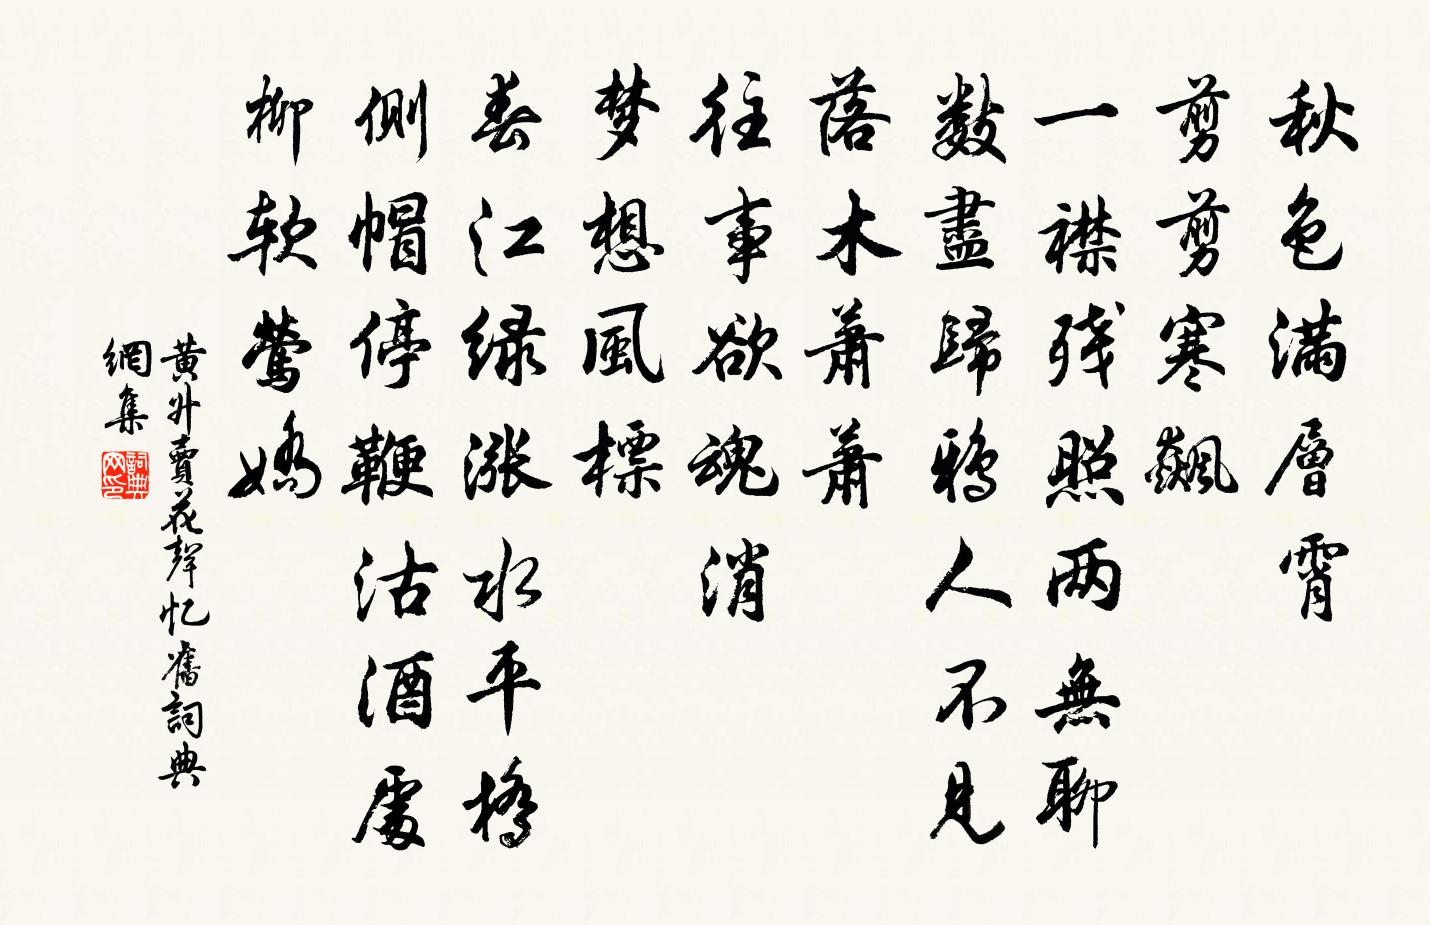 秋色满層霄
剪剪寒飈
一襟残照两無聊
數盡歸鴉人不見
落木蕭蕭
往事欲魂消
梦想風標
春江绿漲水平橋
側帽停鞭沽酒處
柳软鶯嬌
黄升賣花聲忆舊詞典
網集
詞典